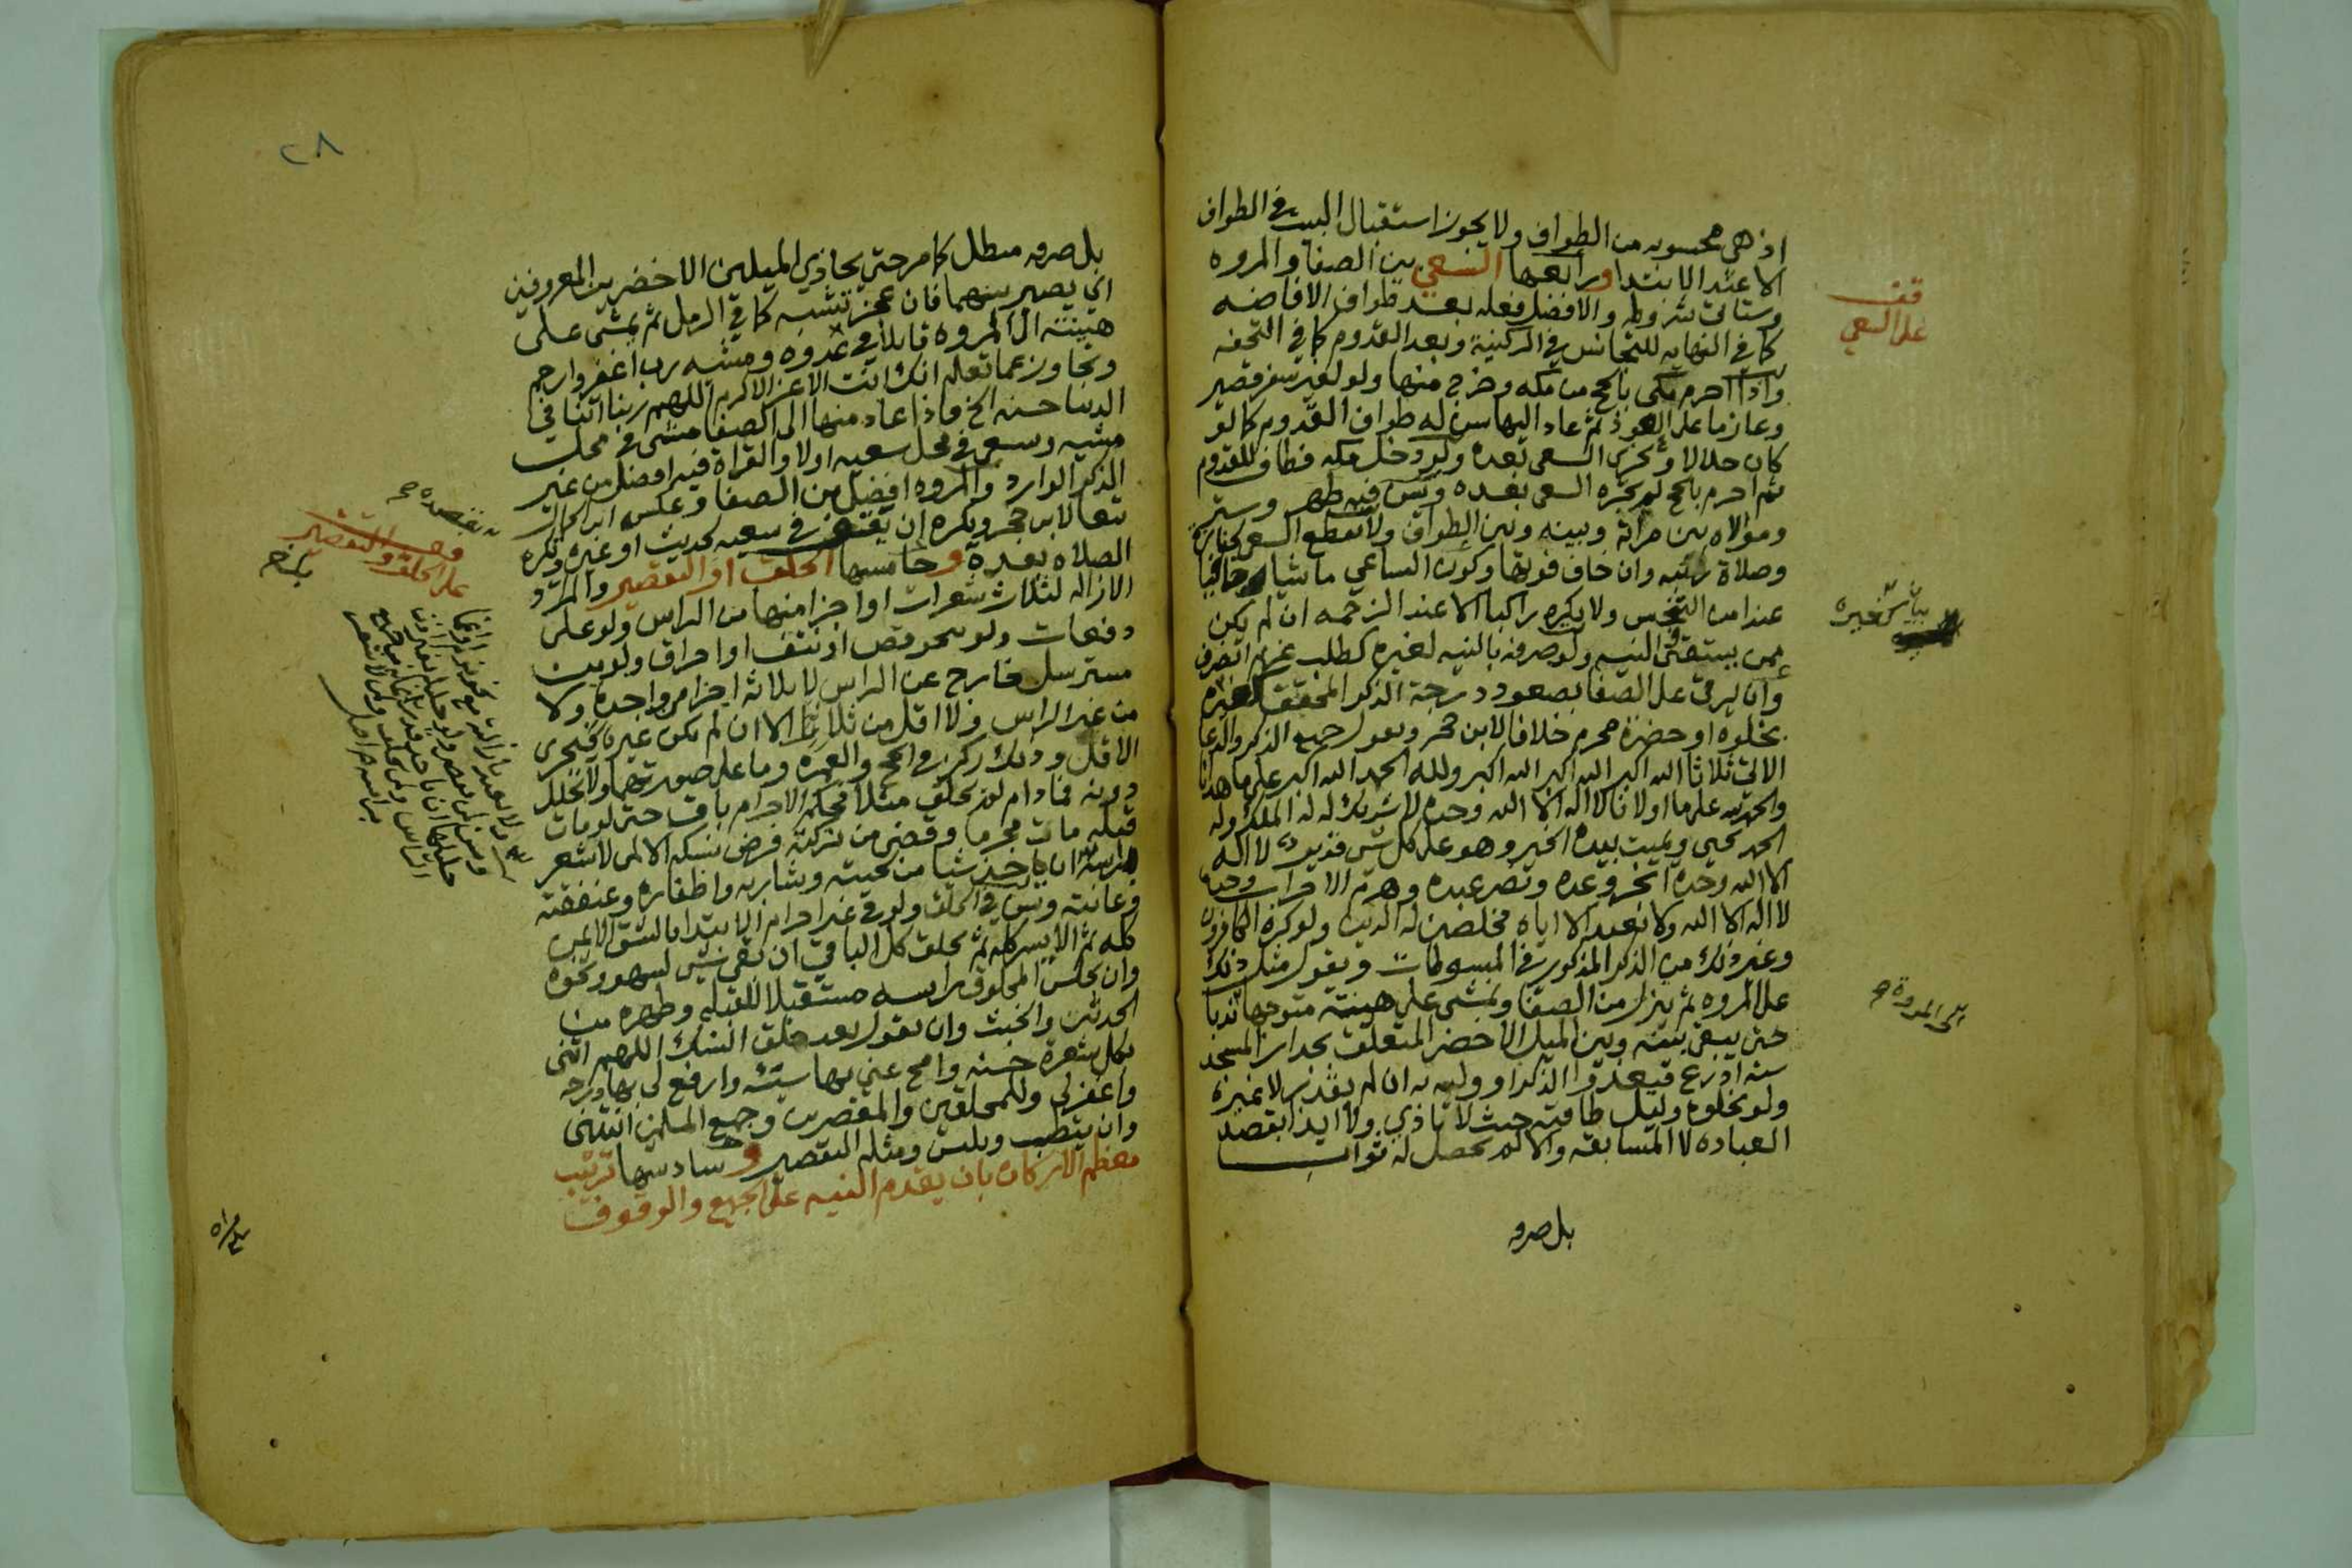 اذ هي محسوبه من الطواف ولا يجوز استقبال البيت في الطواف
الا عند الابتدا ورابعها السعي بين الصفا والمروه
وستاتي شروطه والافضل فعله بعد طواف الافاضه
كما في النهايه للتجانس في الركنية وبعد القدوم كما في التحفه
واذا احرم مكي بالحج من مكه وخرج منها ولو لغير سفر قصير
وعازما على العود ثم عاد اليها سن له طواف القدوم كما لو
كان حلالا ويجزى السعى بعده ولو دخل مكه فطاف للقدوم
ثم احرم بالحج لم يجزه السعى بعده وسن فيه طهر وستر
وموالاه بين مراته وبينه وبين الطواف ولا يقطع السعى لجنازة
وصلاة راتبه وان خاف فوتها وكون الساعي ماشيا
عندا من التنجس ولا يكره راكبا الا عند الزحمه ان لم يكن
ممن يستفتى النبيه ولو صرفه بالنيه لغيره كطلب غريم انصرف
وان يرقى على الصفا بصعود درجة الذكر المحقق
بخلوه او حضرة محرم خلافا لابن حجر ويقول جميع الذكر والدعا
الاتي ثلاثا الله اكبر الله اكبر الله اكبر ولله الحمد الله اكبر على ما هدانا
والحمد لله على ما اولانا لا اله الا الله وحده لا شريك له له الملك وله
الحمد يحيي ويميت بيده الخير وهو على كل شي قدير لا اله
الا الله وحده انجز وعده ونصر عبده وهزم الاحزاب وحده
لا اله الا الله ولا نعبد الا اياه مخلصين له الدين ولو كره الكافرون
وغير ذلك من الذكر المذكور في المبسوطات ويقول مثل ذلك
على المروه ثم ينزل من الصفا ويمشى على هينته متوجها ندبا
حتى يبقى بينه وبين الميل الاخضر المتعلق بجدار المسجد
سته اذرع فيعدو الذكر ان لم يقدر لا غيره
ولو بخلوه وليل طاقته حيث لا تاذي ولا ايذا بقصد
العباده لا المسابقه والا لم يحصل له ثواب
بل صرفه
قف
على السعي
الى المروة صح
٢٨
بل صرفه مبطل كما مر حتى يحاذي الميلين الاخضرين المعروفين
اي يصير بينهما فان عجز تشبه كما في الرمل ثم يمشى على
هينته الى المروه قايلا في عدوه ومشيه رب اغفر وارحم
وتجاوز عما تعلم انك انت الاعز الاكرم اللهم ربنا اتنا في
الدنيا حسنه الخ فاذا عاد منها الى الصفا مشى في محل
مشيه وسعى في محل سعيه اولا والقراة فيه افضل من غير
الذكر الوارد والمروه افضل من الصفا وعكس ابن الجمال
تبعا لابن حجر ويكره ان يقف في سعيه لحديث او غيره ويكره
الصلاه بعده وخامسها الحلق او التقصير والمراد
الازاله لثلاث شعرات او اجزا منها من الراس ولو على
دفعات ولو بنحو قص او نتف او احراق ولو من
مسترسل خارج عن الراس لا ثلاثة اجزا من واحدة ولا
من غير الراس ولا اقل من ثلاث الا ان لم يكن غيره فيجزى
الاقل وذلك ركن في الحج والعمره وما على صورتهما ولا تحلل
دونه فما دام لم يحلق مثلا فحكم الاحرام باق حتى لو مات
قبله مات محرما وقضى من تركته فرض نسكه الا لمن لا شعر
براسه ان ياخذ شيا من لحيته وشاربه واظفاره وعنفقته
وعانته وسن في الحلق ولو في غير احرام الابتدا بالشق الايمن
كله ثم الايسر كله ثم يحلق كل الباقي ان بقى شي لسهو ونحوه
وان يجلس المحلوق راسه مستقبلا للقبله وطهره من
الحدثين والخبث وان يقول بعد حلق النسك اللهم اتنى
بكل شعرة حسنه وامح عني بها سيئه وارفع لى بها درجه
واغفر لي وللمحلقين والمقصرين وجميع المسلمين انتهى
وان يتطيب ويلبس ومثله التقصير وسادسها ترتيب
معظم الاركان بان يقدم النيه على الجميع والوقوف
قف
على الحلق والتقصير